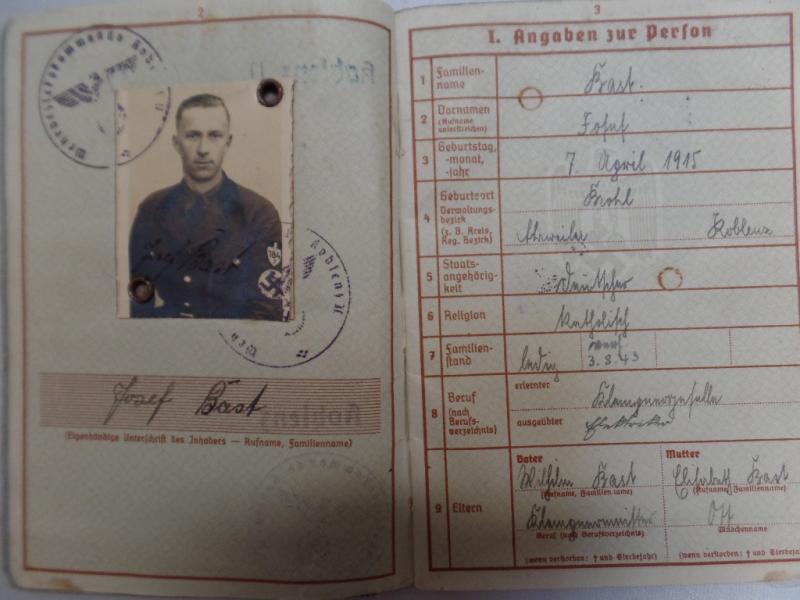 2
Wehrbezirkskommando Kobl
Koblenz II
Josef Bast
184
Koblenz II
Weh
Josef Bast
Koblenz
(Eigenhändige Unterschrift des Inhabers — Rufname, Familienname)
3
I. Angaben zur Person
1 Familien-
name
Bast.
2 Vornamen
(Rufname
unterstreichen)
Josef
3 Geburtstag,
-monat,
-jahr
7. April 1915
4 Geburtsort
Verwaltungs-
bezirk
(z. B. Kreis,
Reg. Bezirk)
Brohl
Ahrweiler Koblenz
5 Staats-
angehörig-
keit
Deutscher
6 Religion
katholisch
7 Familien-
stand
ledig
3.8.43
8 Beruf
(nach
Berufs-
verzeichnis)
erlernter
Klempnergeselle
ausgeübter
Elektriker
9 Eltern
Vater
Wilhelm Bast
(Rufname, Familienname)
Klempnermeister
Beruf (nach Berufsverzeichnis)
(wenn verstorben: † und Sterbejahr)
Mutter
Elisabeth Bast
(Rufname, Familienname)
Ott
Mädchenname
(wenn verstorben: † und Sterbejahr